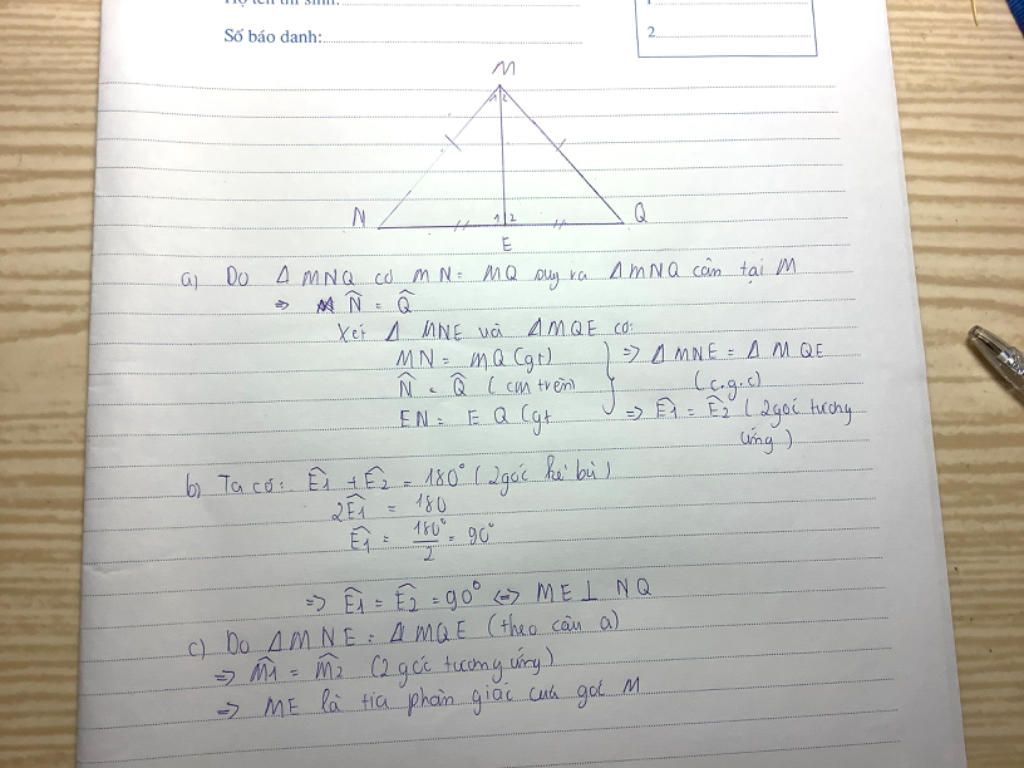 Họ tên thí sinh:
1
Số báo danh:
2
M
1 2
N 1 2 Q
E
a) Do Δ MNQ có MN = MQ suy ra ΔMNQ cân tại M
=> N̂ = Q̂
Xét Δ MNE và ΔMQE có:
MN = MQ (gt) => Δ MNE = Δ MQE
N̂ = Q̂ (cm trên) (c.g.c)
EN = EQ (gt => Ê1 = Ê2 (2 góc tương
ứng)
b) Ta có: Ê1 + Ê2 = 180° (2 góc kề bù)
2Ê1 = 180
Ê1 = 180°/2 = 90°
=> Ê1 = Ê2 = 90° <=> ME ⊥ NQ
c) Do ΔMNE = ΔMQE (theo câu a)
=> M̂1 = M̂2 (2 góc tương ứng)
=> ME là tia phân giác của góc M